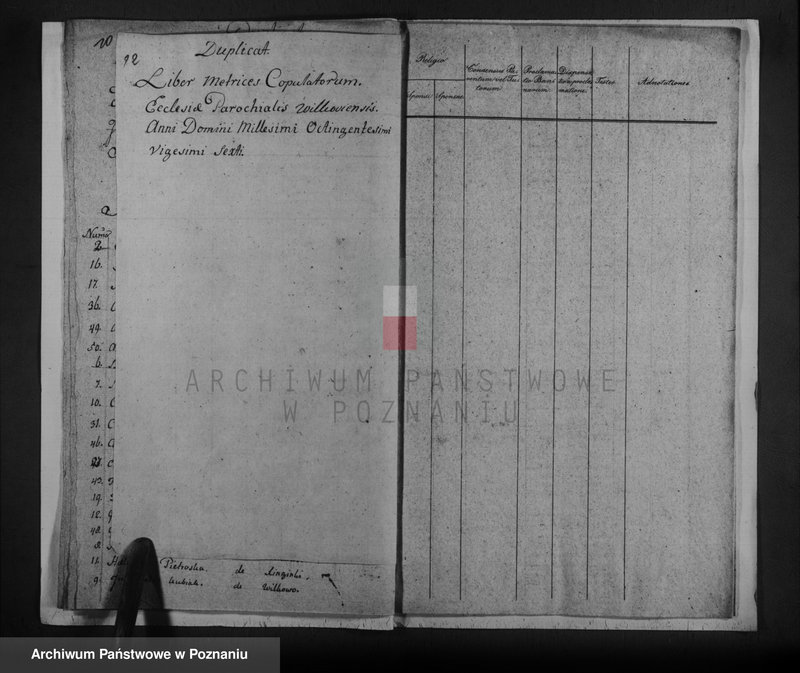 12
Duplicat.
Liber Metrices Copulatorum.
Ecclesiæ Parochialis Wilkowiensis.
Anni Domini Millesimi Octingentesimi
Vigesimi Sexti.
20
Num̃o
2
16.
17.
36.
49.
50.
6.
7.
10.
31.
46.
43.
19.
12.
48.
8.
11. Pietroska de
9. de Wilkowo.
Religio
Sponsi Sponsae
Consensus Pa-
rentum vel Tu-
torum
Proclama-
tio Ban-
norum
Dispensa-
tio a procla-
matione
Testes
Adnotationes
ARCHIWUM PAŃSTWOWE
W POZNANIU
Archiwum Państwowe w Poznaniu